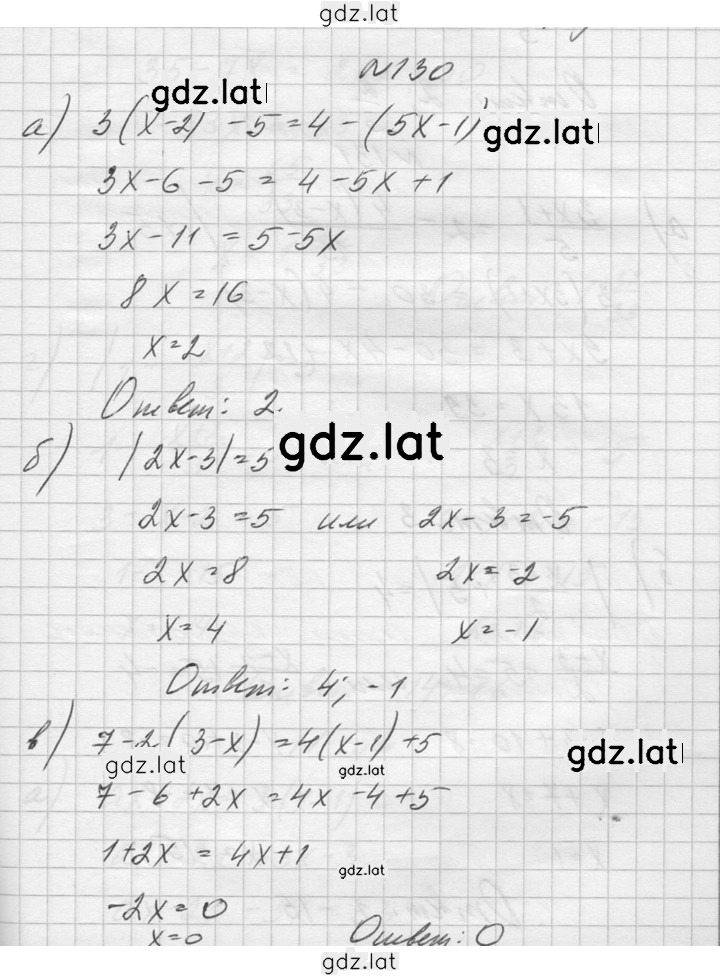 gdz.lat
N130
gdz.lat
а) 3(x-2) -5=4-(5x-1)
gdz.lat
3x-6-5=4-5x+1
3x-11=5-5x
8x=16
x=2
Ответ: 2.
gdz.lat
б) |2x-3|=5
2x-3=5 или 2x-3=-5
2x=8 2x=-2
x=4 x=-1
Ответ: 4; -1
в) 7-2(3-x)=4(x-1)+5
gdz.lat gdz.lat gdz.lat
7-6+2x=4x-4+5
1+2x=4x+1
gdz.lat
-2x=0
x=0 Ответ: 0
gdz.lat